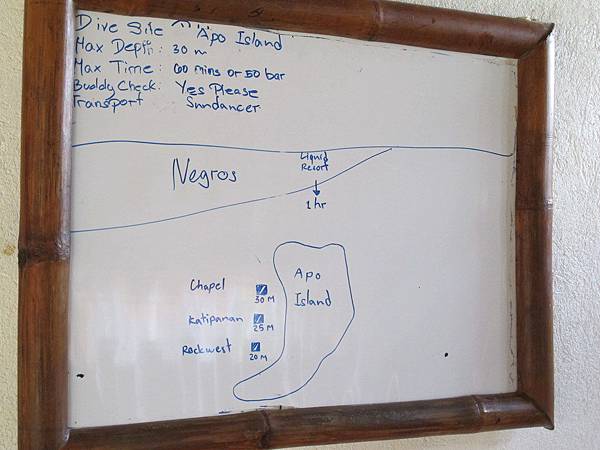 Dive Site : Apo Island
Max Depth : 30 m
Max Time : 60 mins or 50 bar
Buddy Check : Yes Please
Transport : Sundancer
Negros
Liquid
Resort
1 hr
Apo
Island
Chapel
30 M
Katipanan
25 M
Rockwest
20 M